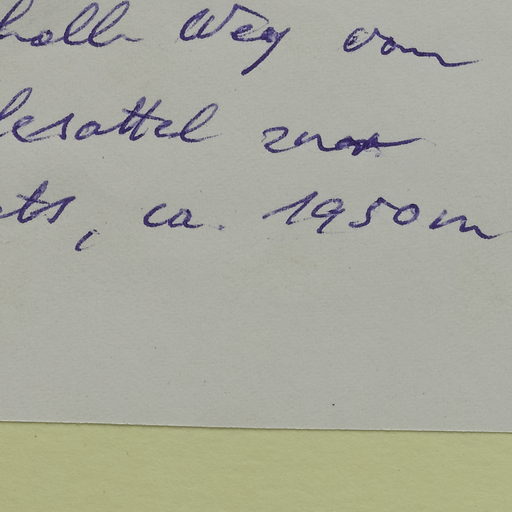 halb Weg vom
lesattel zur
ts, ca. 1950m